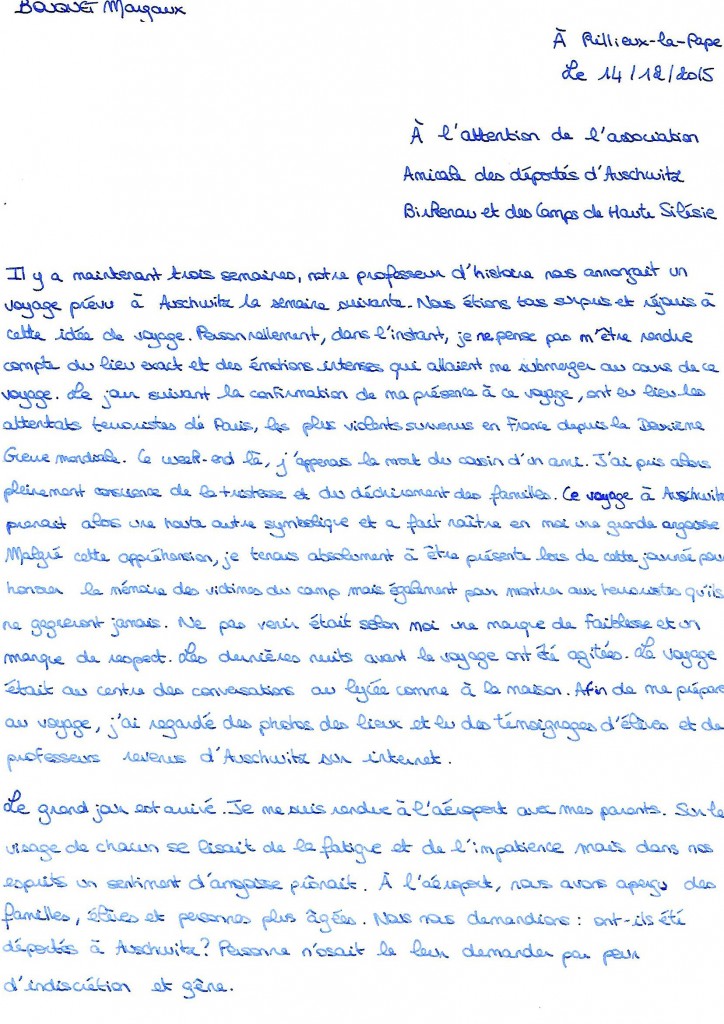 BOUQUET Margaux
À Rillieux-la-Pape
Le 14/12/2015
À l'attention de l'association
Amicale des déportés d'Auschwitz
Birkenau et des Camps de Haute Silésie
Il y a maintenant trois semaines, notre professeur d'histoire nous annonçait un
voyage prévu à Auschwitz la semaine suivante. Nous étions tous surpris et réjouis à
cette idée de voyage. Personnellement, dans l'instant, je ne pense pas m'être rendue
compte du lieu exact et des émotions intenses qui allaient me submerger au cours de ce
voyage. Le jour suivant la confirmation de ma présence à ce voyage, ont eu lieu les
attentats terroristes de Paris, les plus violents survenus en France depuis la Deuxième
Guerre mondiale. Ce week-end là, j'apprenais la mort du cousin d'un ami. J'ai pris alors
pleinement conscience de la tristesse et du déchirement des familles. Ce voyage à Auschwitz
prenait alors une toute autre symbolique et a fait naître en moi une grande angoisse
Malgré cette appréhension, je tenais absolument à être présente lors de cette journée pour
honorer la mémoire des victimes du camp mais également pour montrer aux terroristes qu'ils
ne gagneront jamais. Ne pas venir était selon moi une marque de faiblesse et un
manque de respect. Les dernières nuits avant le voyage ont été agitées. Le voyage
était au centre des conversations au lycée comme à la maison. Afin de me préparer
au voyage, j'ai regardé des photos des lieux et lu des témoignages d'élèves et de
professeurs revenus d'Auschwitz sur internet.
Le grand jour est arrivé. Je me suis rendue à l'aéroport avec mes parents. Sur le
visage de chacun se lisait de la fatigue et de l'impatience mais dans nos
esprits un sentiment d'angoisse prônait. À l'aéroport, nous avons aperçu des
familles, élèves et personnes plus âgées. Nous nous demandions : ont-ils été
déportés à Auschwitz? Personne n'osait le leur demander par peur
d'indiscrétion et gêne.